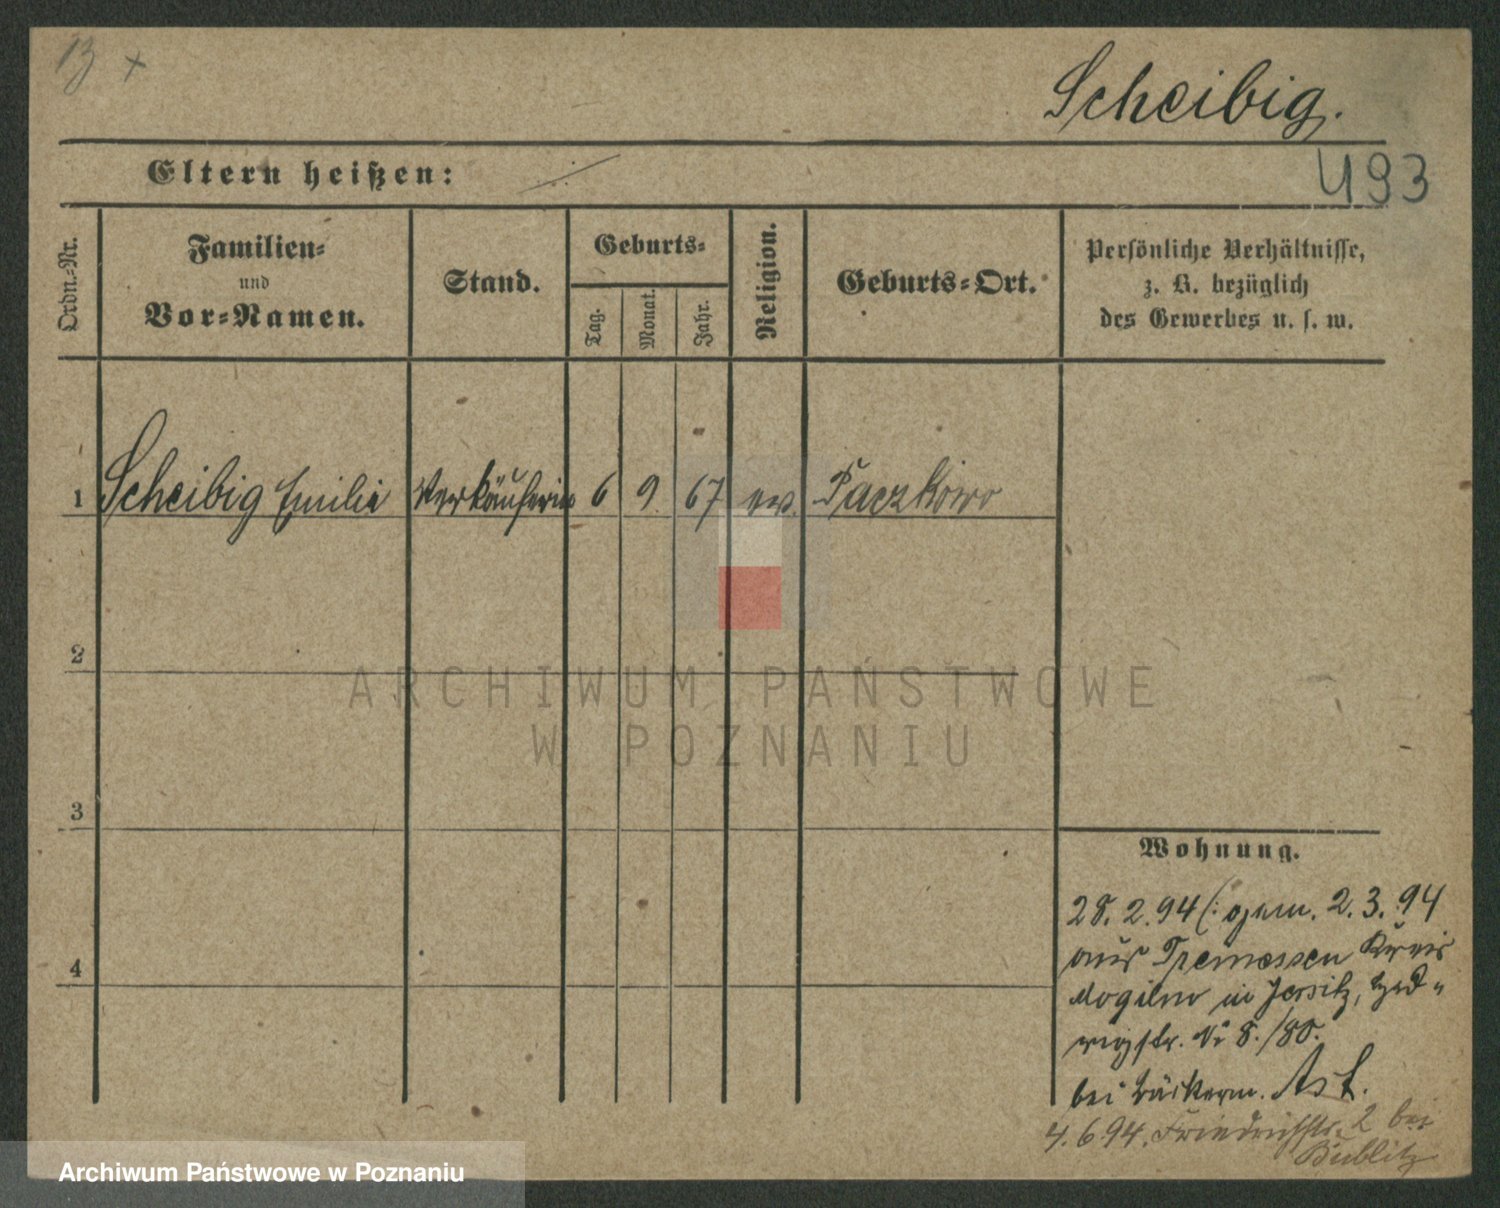 13 +
Scheibig.
Eltern heißen:
493
Ordn.-Nr.
Familien-
und
Vor-Namen.
Stand.
Geburts-
Tag.
Monat.
Jahr.
Religion.
Geburts-Ort.
Persönliche Verhältnisse,
z. B. bezüglich
des Gewerbes u. s. w.
1 Scheibig Emilie Verkäuferin 6 9. 67 ev. Paczkowo
2
3
4
Wohnung.
28. 2. 94 (: gem. 2. 3. 94
aus Tremessen Kreis
Mogilno in Jersitz, Hed-
wigstr. No 8./80.
bei Bäckerm. Ast.
4. 6 94. Friedrichstr. 2 bei
Bublitz
ARCHIWUM PAŃSTWOWE
W POZNANIU
Archiwum Państwowe w Poznaniu